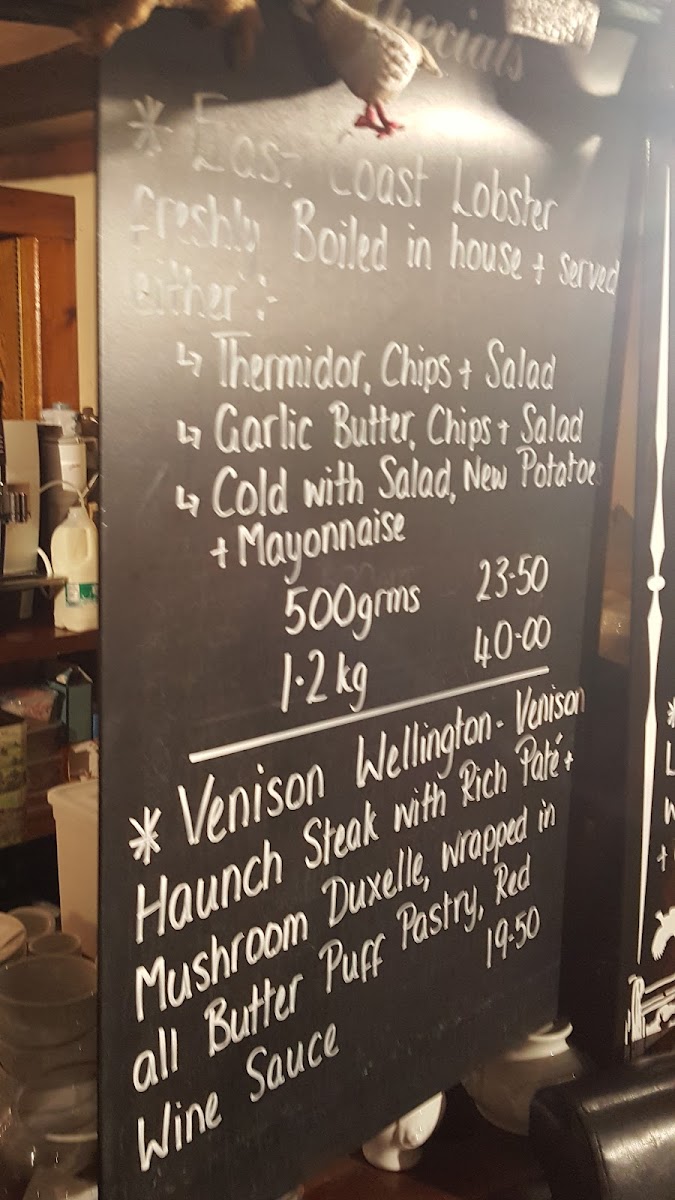 Specials
* East Coast Lobster
freshly Boiled in house + served
either :-
↳ Thermidor, Chips + Salad
↳ Garlic Butter, Chips + Salad
↳ Cold with Salad, New Potatoes
+ Mayonnaise
500grms 23-50
1.2kg 40-00
* Venison Wellington - Venison
Haunch Steak with Rich Paté +
Mushroom Duxelle, wrapped in
all Butter Puff Pastry, Red
Wine Sauce 19-50